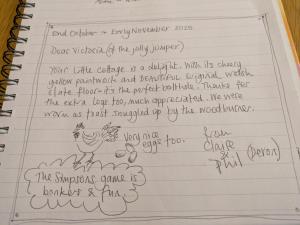 End October - Early November 2025
Dear Victoria (of the jolly jumper)
Your little cottage is a delight. With its cheery
yellow paintwork and beautiful original welsh
slate floor - it's the perfect bolthole. Thanks for
the extra logs too, much appreciated. We were
warm as toast snuggled up by the woodburner.
Very nice
eggs too.
from
Claire
& Phil (Devon)
The Simpsons game is
bonkers & fun.